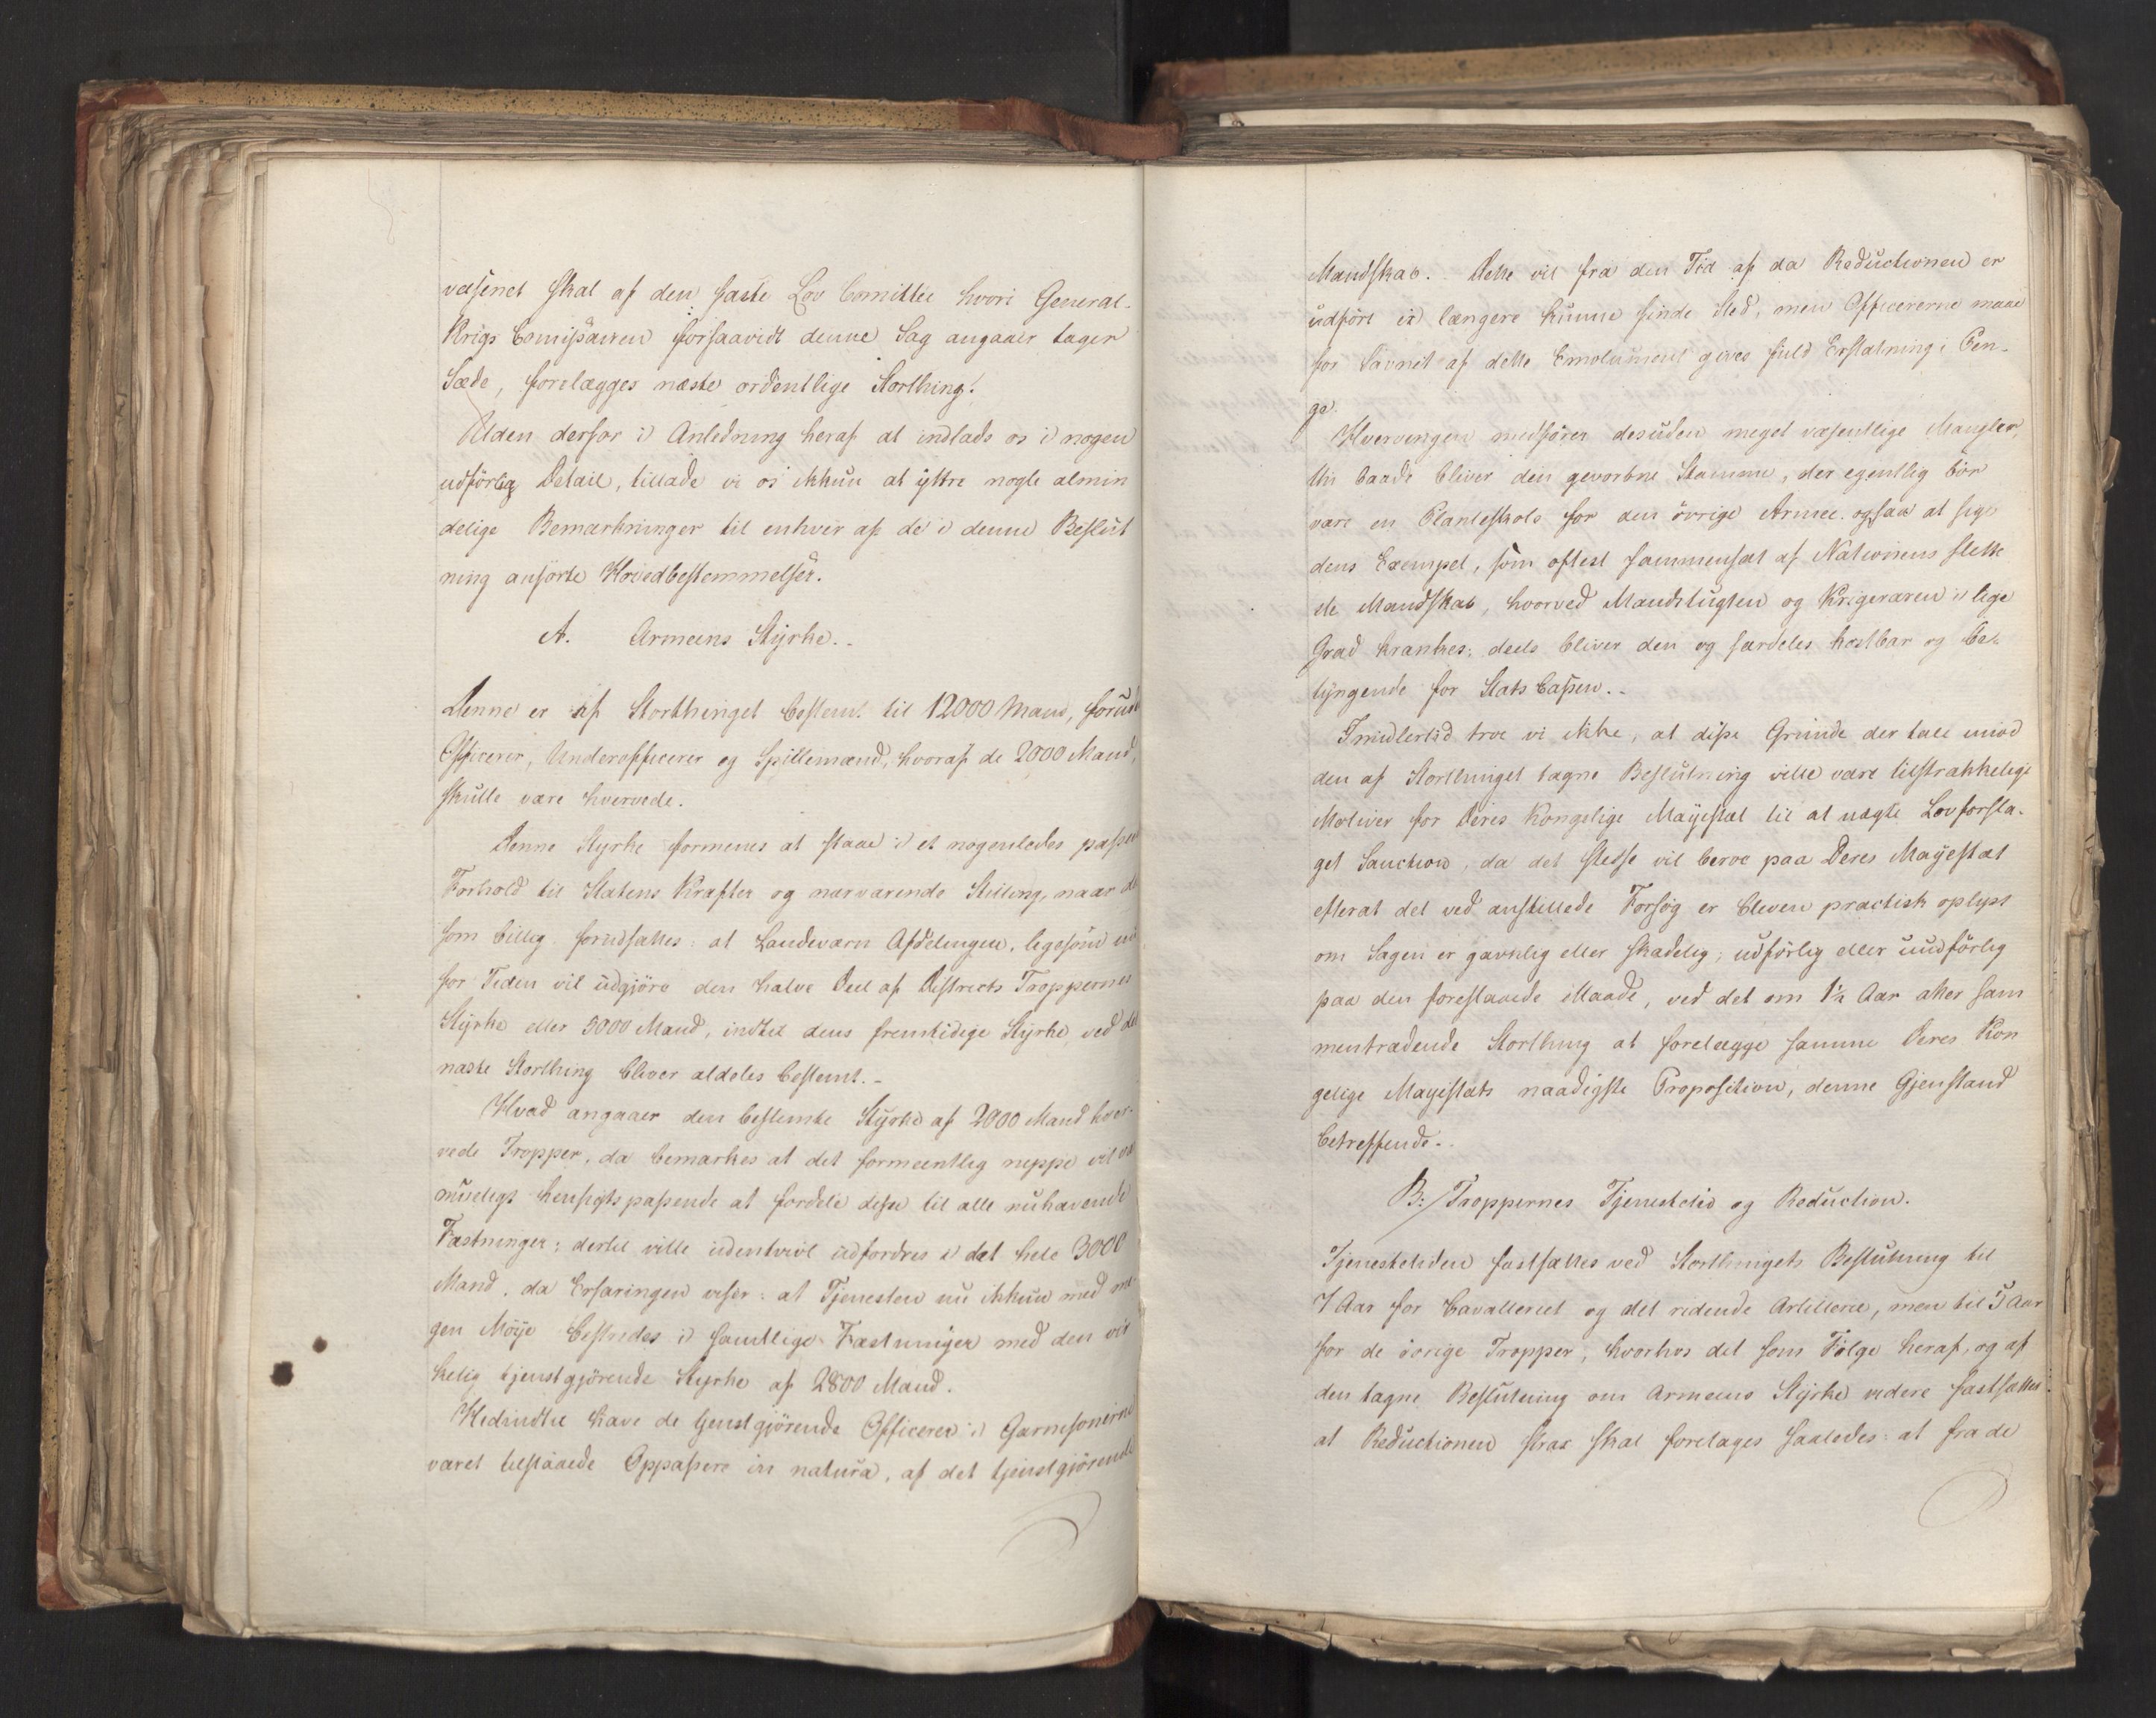 væsenet skal af den faste Lov Comittee hvori General-
Krigs Comissairen forsaavidt denne Sag angaaer tager
Sæde, forelægges næste ordentlige Storthing.
Uden derfor i Anledning heraf at indlade os i nogen
udførlig Detail, tillade vi os ikkun at yttre nogle almin
delige Bemærkninger til enhver af de i denne Beslut
ning anførte Hovedbestemmelser.
A. Armeens Styrke..
Denne er af Storthinget bestemt til 12000 Mand, foruden
Officerer, Underofficerer og Spillemænd, hvoraf de 2000 Mand,
skulle være hvervede.
Denne Styrke formenes at staae i et nogenledes passende
Forhold til Statens Kræfter og nærværende Stilling, naar det
som billig forudsættes: at Landeværn Afdelingen, ligesom nu
for Tiden vil udgjøre den halve Deel af Districts Troppernes
Styrke eller 5000 Mand, indtil dens fremtidige Styrke, ved det
næste Storthing bliver aldeles bestemt.-
Hvad angaaer den bestemte Styrke af 2000 Mand hver-
vede Tropper, da bemærkes at det formeentlig neppe vil være
mueligt hensigtspassende at fordele disse til alle nuhavende
Fæstninger; dertil ville udentvivl udfordres i det hele 3000
Mand, da Erfaringen viser: at Tjenesten nu ikkun med me-
gen Møye bestrides i samtlige Fæstninger med den vir
kelig tjenstgjørende Styrke af 2800 Mand.
Hedindtil have de tjenstgjørende Officerer i Garnisonerne
været tilstaaede Oppassere in natura, af det tjenstgjørende
Mandskab. Dette vil fra den Tid af da Reductionen er
udført ei længere kunne finde Sted, men Officererne maae
for Savnet af dette Emolument gives fuld Erstatning i Pen-
ge.
Hvervingen medfører desuden meget væsentlige Mangler,
thi baade bliver den gevorbne Stamme, der egentlig bør
være en Planteskole for den øvrige Armee, ogsaa at sige
dens Exempel, som oftest sammensat af Nationens slette
ste Mandskab, hvorved Mandstugten og Krigeræren i lige
Grad krænkes; deels bliver den og særdeles kostbar og be-
tyngende for Stats Cassen..
Imidlertid troe vi ikke, at disse Grunde der tale imod
den af Storthinget tagne Beslutning ville være tilstrækkelige
Motiver for Deres Kongelige Mayestæt til at nægte Lovforsla-
get Sanction, da det stedse vil beroe paa Deres Mayestæt
efterat det ved anstillede Forsøg er bleven practisk oplyst
om Sagen er gavnlig eller skadelig, udførlig eller uudførlig
paa den foreslaaede Maade, ved det om 1½ Aar atter sam
mentrædende Storthing at forelægge samme Deres Kon
gelige Mayestæts naadigste Proposition, denne Gjenstand
betreffende..
B:/ Troppernes Tjenestetid og Reduction.
Tjenestetiden fastsættes ved Storthingets Beslutning til
7 Aar for Cavalleriet og det ridende Artillerie, men til 5 Aar
for de øvrige Tropper, hvorhos det som Følge heraf, og af
den tagne Beslutning om Armeens Styrke videre fastsættes:
at Reductionen strax skal foretages saaledes: at fra de